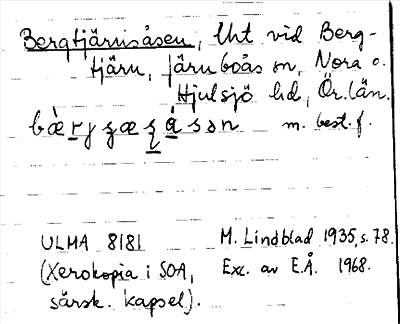 Bergtjärnsåsen, Uht vid Berg-
tjärn, Järnboås sn, Nora o.
Hjulsjö hd, Ör. län.
m. best. f.
ULMA 8181
(Xerokopia i SOA,
särsk. kapsel).
M. Lindblad 1935, s. 78.
Exc. av E.Å. 1968.